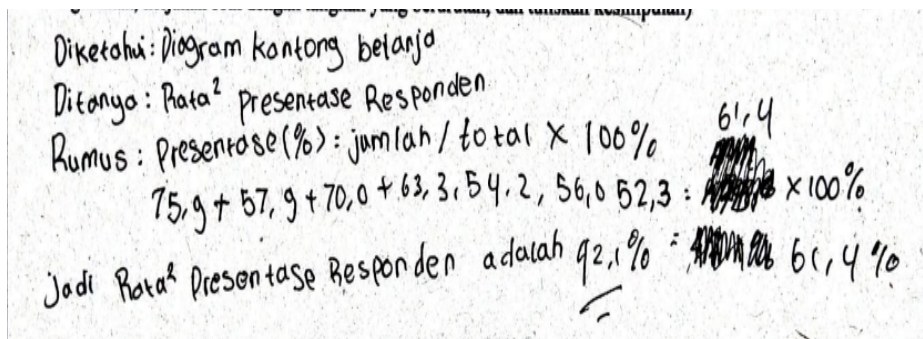 Diketahui: Diagram kantong belanja
Ditanya: Rata² Presentase Responden
Rumus: Presentase (%): jumlah / total x 100%
61,4
75,9 + 57,9 + 70,0 + 63,3, 54,2, 56,0 52,3 : x 100%
Jadi Rata² Presentase Responden adalah 92,1% = 61,4%